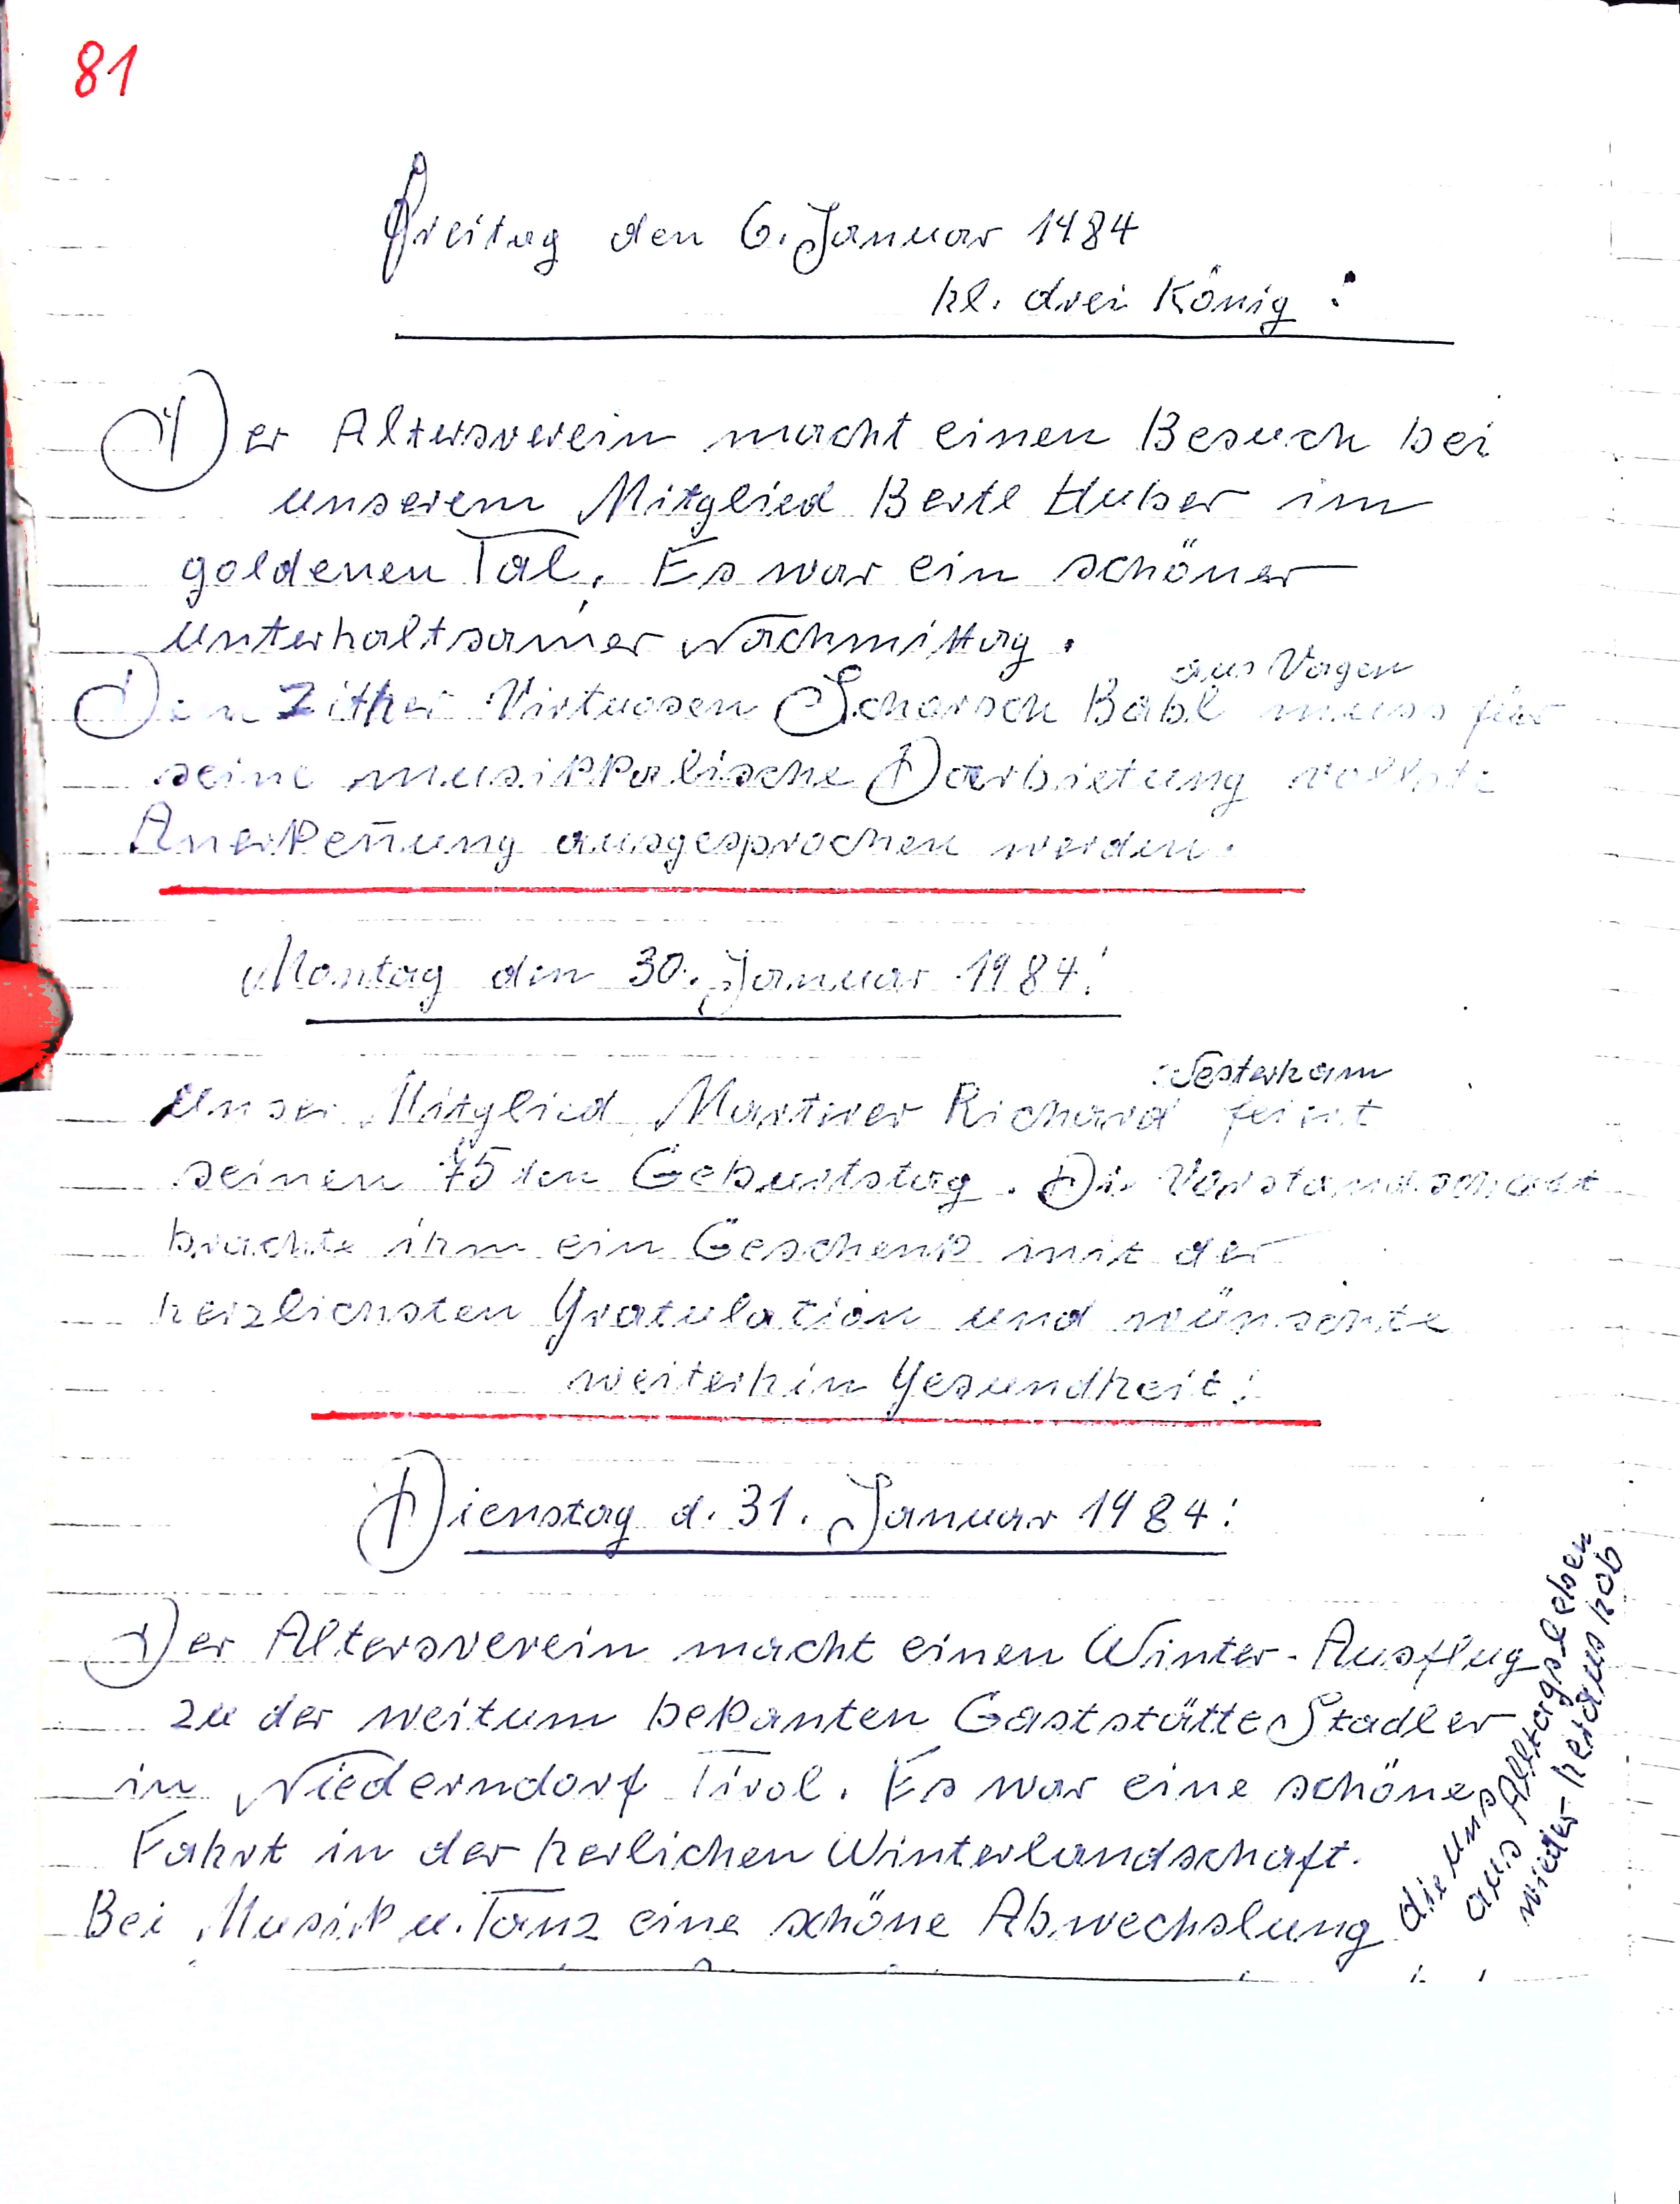 81
Freitag den 6. Januar 1984
hl. drei König :
Der Altersverein macht einen Besuch bei
unserem Mitglied Bertl Huber im
goldenen Tal. Es war ein schöner
unterhaltsamer Nachmittag.
aus Vagen
Den Zither Virtuosen Scharsch Babl muss für
seine musikkalische Darbietung vollste
Anerkeñung ausgesprochen werden.
Montag den 30. Januar 1984!
Westerham
Unser Mitglied Richard feiert
seinen 75ten Geburtstag. Die Vorstandschaft
brachte ihm ein Geschenk mit der
herzlichsten Gratulation und wünschte
weiterhin Gesundheit!
Dienstag d. 31. Januar 1984:
Der Altersverein macht einen Winter-Ausflug
zu der weitum bekanten Gaststätte Stadler
in Niederndorf Tirol. Es war eine schöne
Fahrt in der herlichen Winterlandschaft.
Bei Musik u. Tanz eine schöne Abwechslung
die uns
aus Alltagsleben
wieder heraus hob